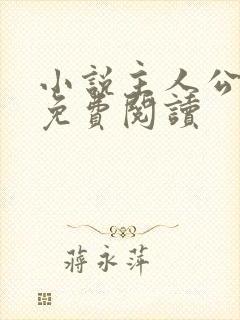 小說主人公
免費閱讀
蔣永萍